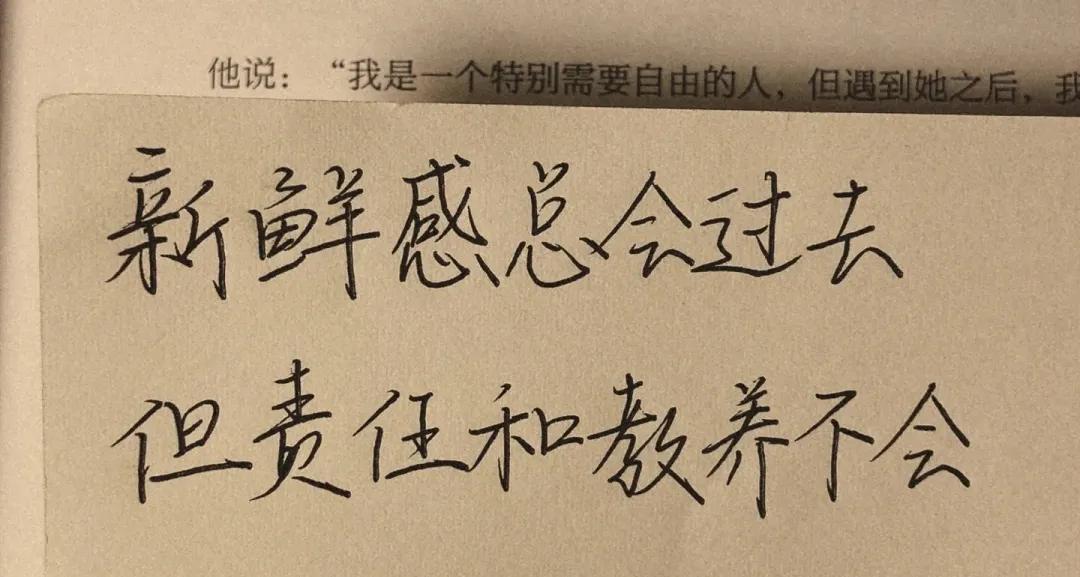 他说：“我是一个特别需要自由的人，但遇到她之后，我
新鲜感总会过去
但责任和教养不会